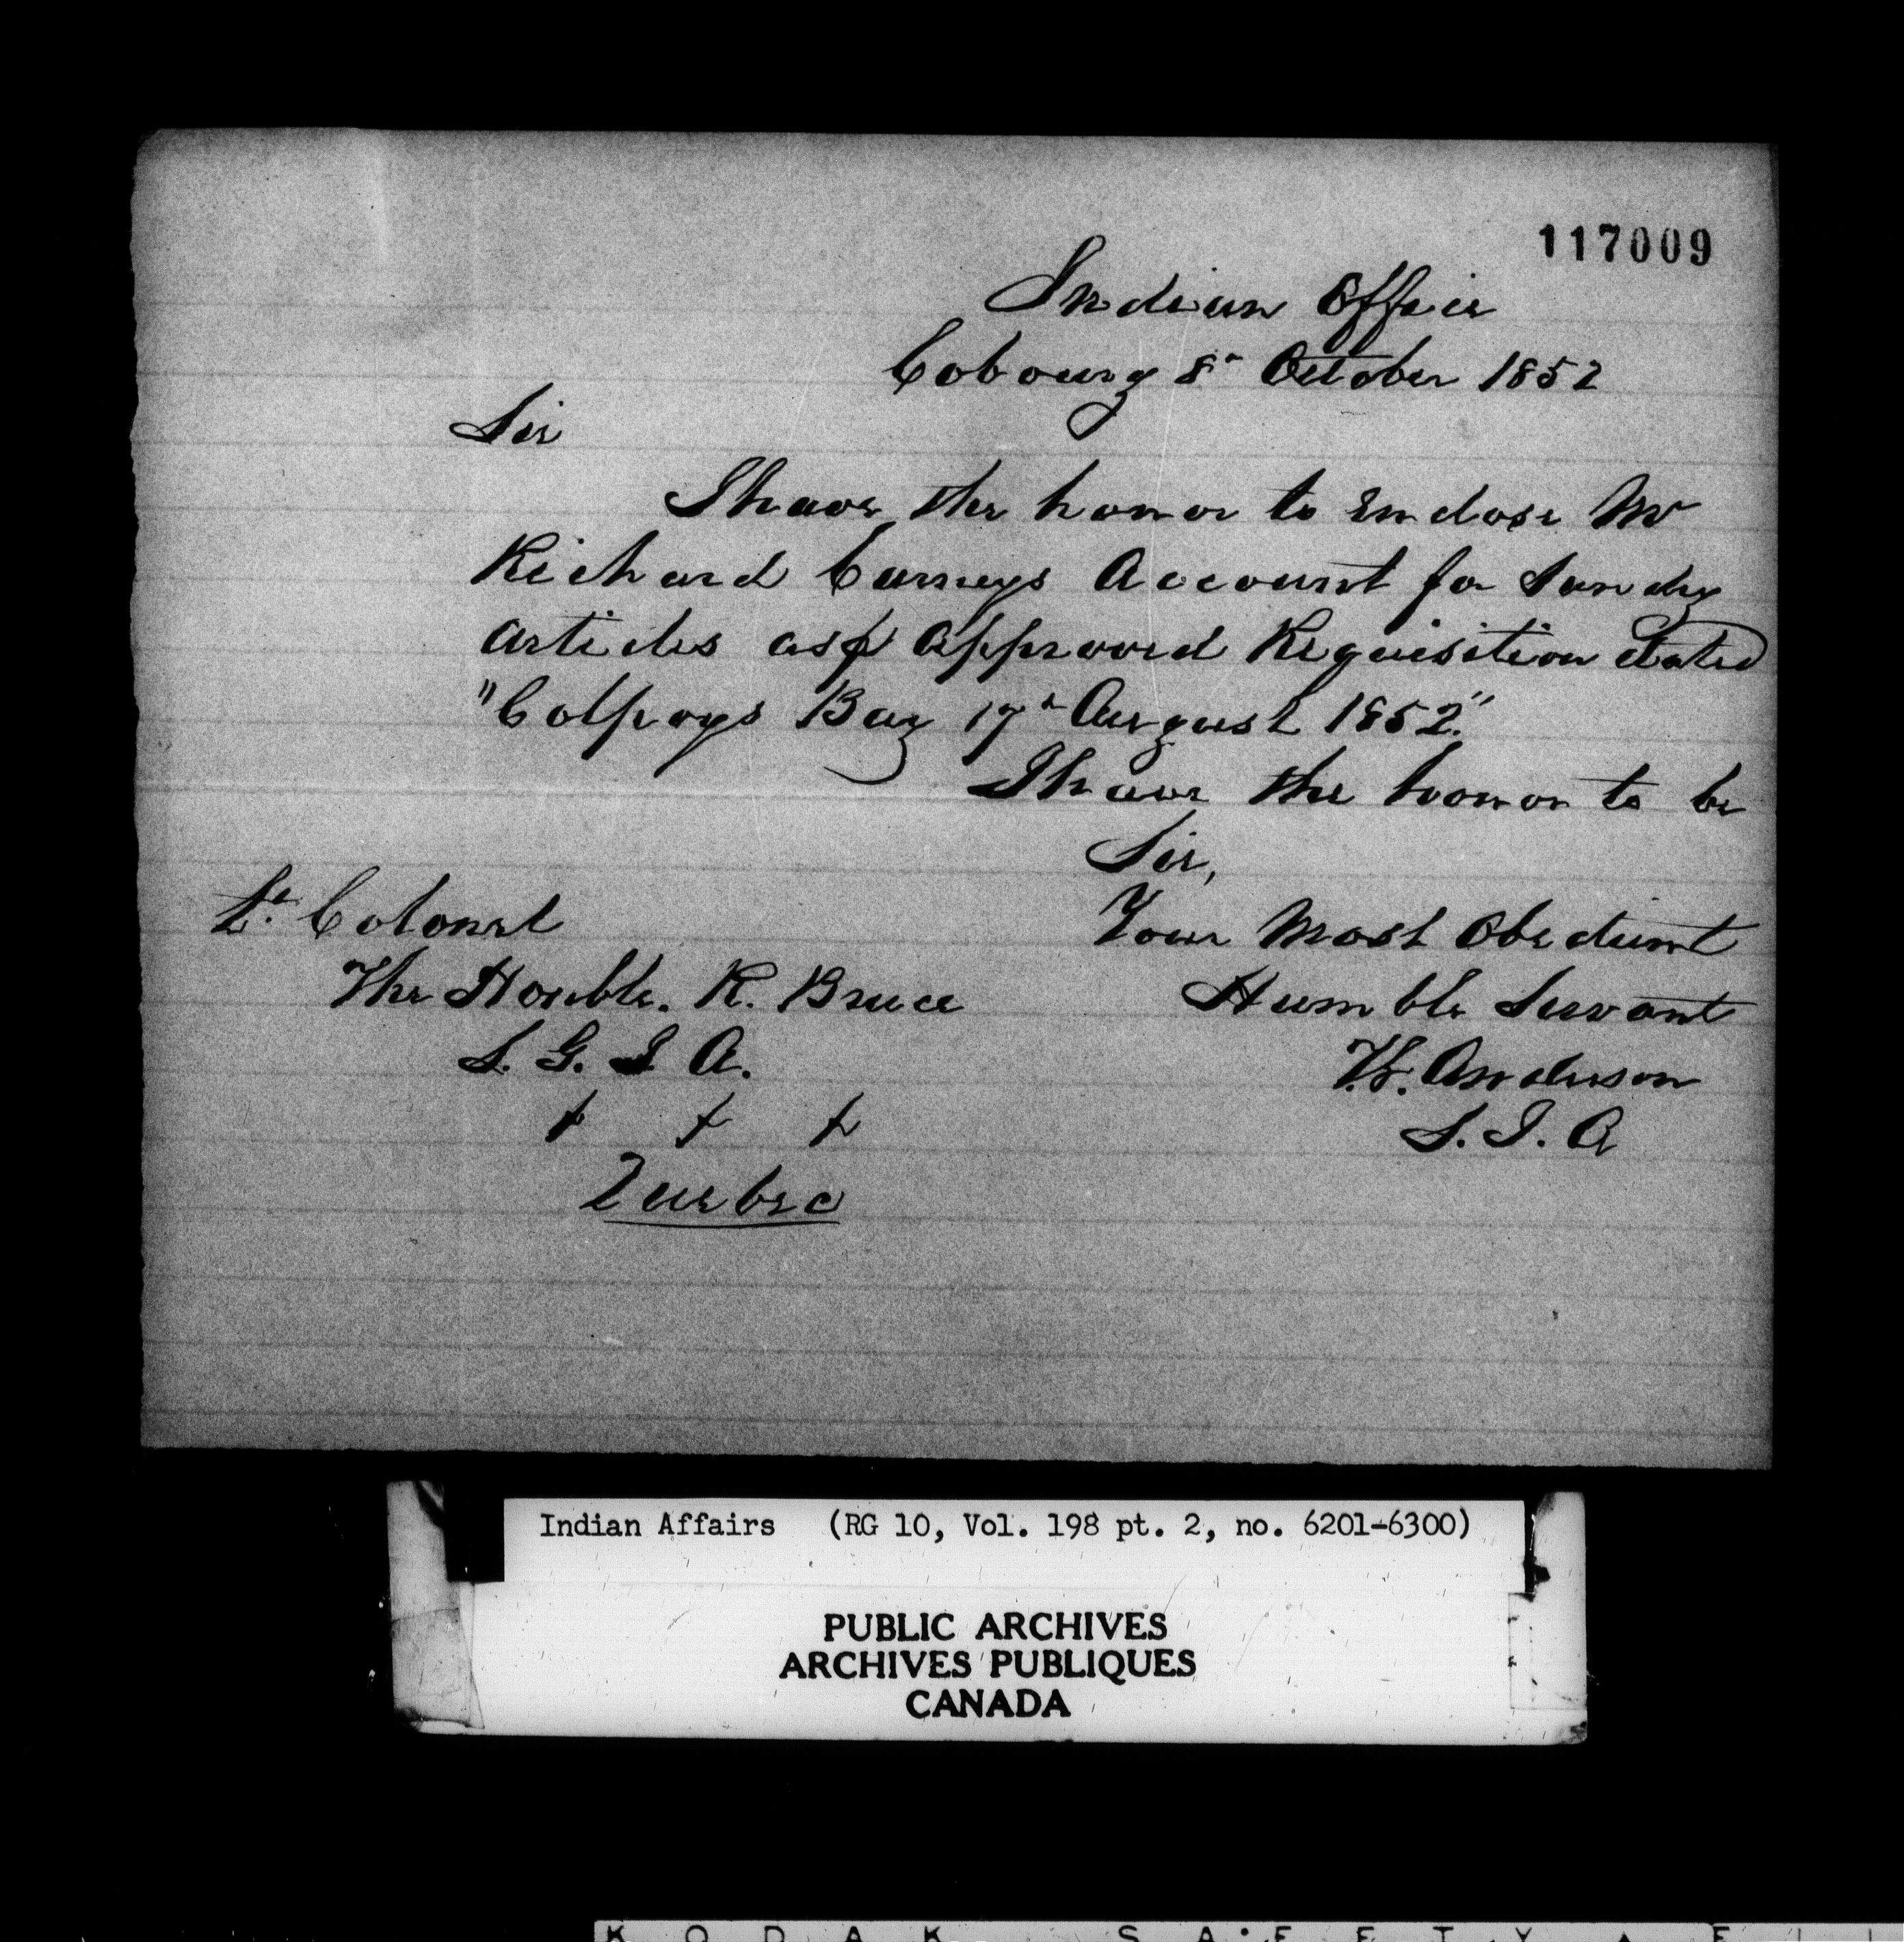 117009
Indian Office
Cobourg 8th October 1852
Sir
I have the honor to enclose Mr
Richard Carneys Account for Sundry
Articles as p Approved Requisition dated
"Colpoys Bay 17th August 1852."
I have the honor to be
Sir,
Your Most Obedient
Humble Servant
T.G. Anderson
S. I. A
Lt. Colonel
The Honble. R. Bruce
S. G. I A.
+ + +
Quebec
Indian Affairs (RG 10, Vol. 198 pt. 2, no. 6201-6300)
PUBLIC ARCHIVES
ARCHIVES PUBLIQUES
CANADA
KODAK SAFETY